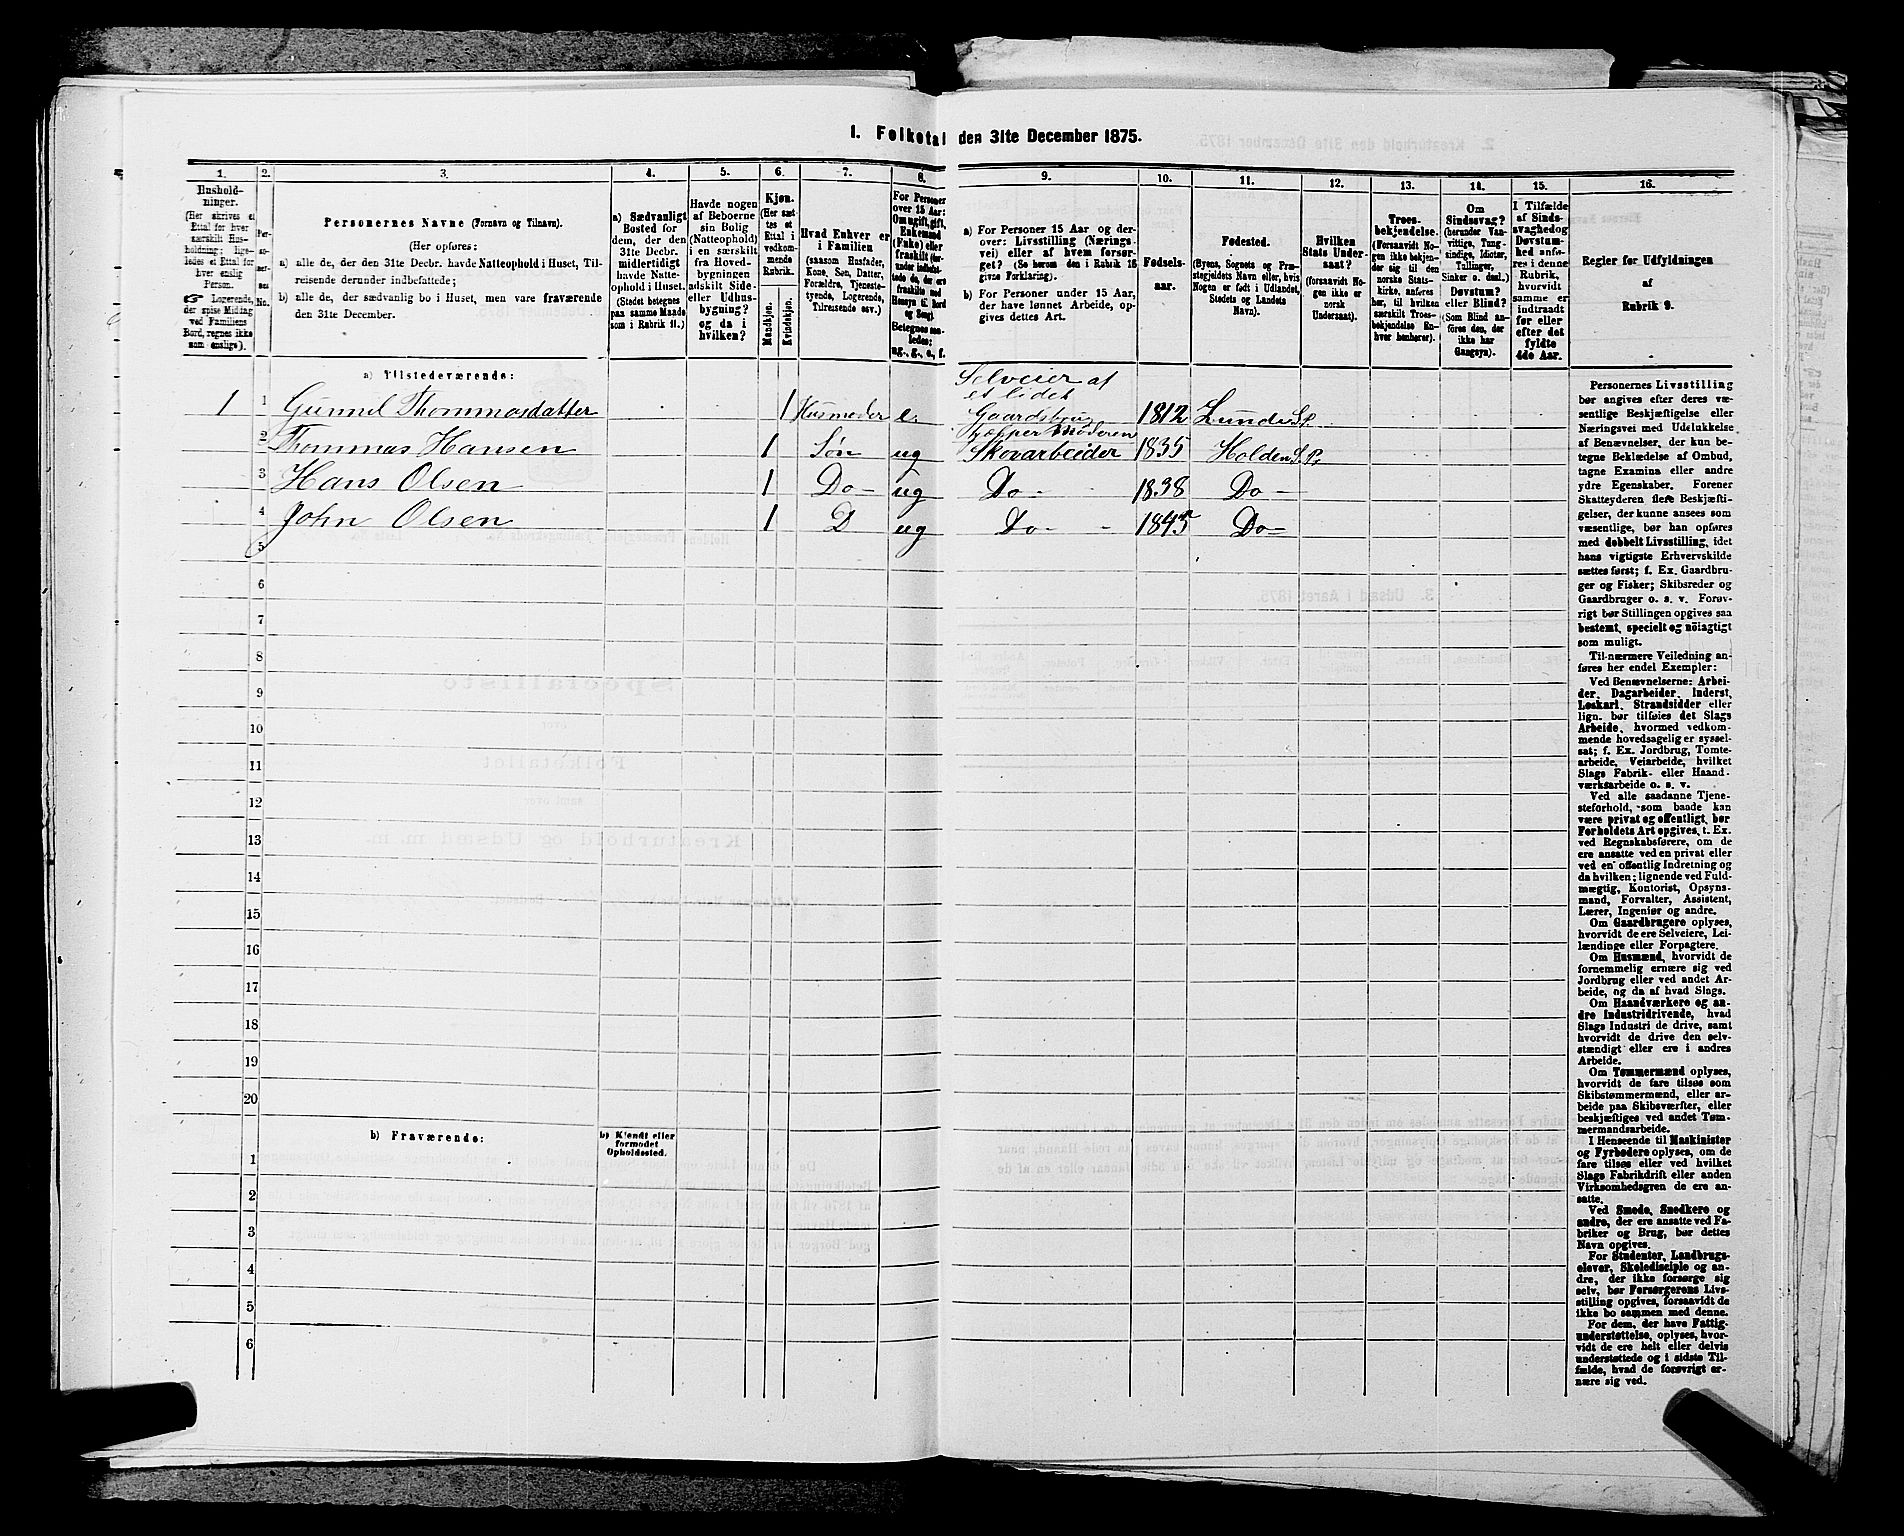 1. Folketal den 31te December 1875.
1.
2.
3.
4.
5.
6.
7.
8.
9.
10.
11.
12.
13.
14.
15.
16.
Hushold-
ninger.
(Her skrives et
Ettal for hver
særskilt Hus-
holdning; lige-
ledes et Ettal for
hver enslig
Person.
☛ Logerende,
der spise Middag
ved Familiens
Bord, regnes ikke
som enslige).
Per-
so-
ner-
nes
No.
Personernes Navne (Fornavn og Tilnavn).
(Her opføres:
a) alle de, der den 31te Decbr. havde Natteophold i Huset, Til-
reisende derunder indbefattede;
b) alle de, der sædvanlig bo i Huset, men vare fraværende
den 31te December.
a) Sædvanligt
Bosted for
dem, der den
31te Decbr.
midlertidigt
havde Natte-
ophold i Huset.
(Stedet betegnes
paa samme Maade
som i Rubrik 11.)
Havde nogen
af Beboerne
sin Bolig
(Natteophold)
i en særskilt
fra Hoved-
bygningen
adskilt Side-
eller Udhus-
bygning?
og da i
hvilken?
Kjøn.
(Her sæt-
tes et
Ettal i
vedkom-
mende
Rubrik.
Mandkjøn.
Kvindekjøn.
Hvad Enhver er
i Familien
(saasom Husfader,
Kone, Søn, Datter,
Forældre, Tjeneste-
tyende, Logerende,
Tilreisende osv.)
For Personer
over 15 Aar:
Om ugift, gift,
Enkemand
(Enke) eller
fraskilt (her-
under indbefat-
tede de, der ere
fraskilte med
Hensyn til Bord
og Seng).
Betegnes saa-
ledes:
ug., g., e., f.
a) For Personer 15 Aar og der-
over: Livsstilling (Nærings-
vei) eller af hvem forsør-
get? (Se herom den i Rubrik 16
givne Forklaring).
b) For Personer under 15 Aar,
der have lønnet Arbeide, op-
gives dettes Art.
Fødsels-
aar.
Fødested.
(Byens, Sognets og Præ-
stegjeldets Navn eller, hvis
Nogen er født i Udlandet,
Stedets og Landets
Navn).
Hvilken
Stats Under-
saat?
(forsaavidt No-
gen ikke er
norsk
Undersaat).
Troes-
bekjendelse.
(Forsaavidt No-
gen ikke bekjen-
der sig til den
norske Stats-
kirke, anføres
her, til hvilken
særskilt Troes-
bekjendelse En-
hver henhører).
Om
Sindssvag?
(herunder Van-
vittige, Tung-
sindige, Idioter,
Tullinger,
Sinker o. desl.)
Døvstum?
eller Blind?
(Som Blind an-
føres den, der
ikke har
Gangsyn).
I Tilfælde
af Sinds-
svaghed og
Døvstum-
hed anfø-
res i denne
Rubrik,
hvorvidt
samme er
indtraadt
før eller
efter det
fyldte
4de Aar.
Regler for Udfyldningen
af
Rubrik 9.
a) Tilstedeværende:
1 1 Gunnil Thommasdatter 1 Husmoder e. Selveier af et lidet Gaardsbrug 1812 Lunde S.P.
2 Thommas Hansen 1 Søn ug Hjælper Moderen Skovarbeider 1835 Holden S.P.
3 Hans Olsen 1 Do ug Do 1838 Do
4 John Olsen 1 D ug Do 1845 Do
5
6
7
8
9
10
11
12
13
14
15
16
17
18
19
20
b) Fraværende:
b) Kjendt eller
formodet
Opholdssted.
1
2
3
4
5
6
Personernes Livsstilling
bør angives efter deres væ-
sentlige Beskjæftigelse eller
Næringsvei med Udelukkelse
af Benævnelser, der kun be-
tegne Beklædelse af Ombud,
tagne Examina eller andre
ydre Egenskaber. Forener
Skatteyderen flere Beskjæfti-
gelser, der kunne ansees som
væsentlige, bør han opføres
med dobbelt Livsstilling, idet
hans vigtigste Erhvervskilde
sættes først; f. Ex. Gaardbru-
ger og Fisker; Skibsreder og
Gaardbruger o. s. v. Forøv-
rigt bør Stillingen opgives saa
bestemt, specielt og nöiagtigt
som muligt.
Til nærmere Veiledning an-
føres her endel Exempler:
Ved Benævnelserne: Arbei-
der, Dagarbeider, Inderst,
Løskarl, Strandsidder eller
lign. bør tilføies det Slags
Arbeide, hvormed vedkom-
mende hovedsagelig er syssel-
sat; f. Ex. Jordbrug, Tomte-
arbeide, Veiarbeide, hvilket
Slags Fabrik- eller Haand-
værksarbeide o. s. v.
Ved alle saadanne Tjene-
steforhold, som baade kan
være privat og offentligt, bør
Forholdets Art opgives, t. Ex.
ved Regnskabsførere, om de
ere ansatte ved en privat eller
ved en offentlig Indretning og
da hvilken; lignende ved Fuld-
mægtig, Kontorist, Opsyns-
mand, Forvalter, Assistent,
Lærer, Ingeniør og andre.
Om Gaardbrugere oplyses,
hvorvidt de ere Selveiere, Lei-
lændinge eller Forpagtere.
Om Husmænd, hvorvidt de
fornemmelig ernære sig ved
Jordbrug eller ved andet Ar-
beide, og da af hvad Slags.
Om Haandværkere og an-
dre Industridrivende, hvad
Slags Industri de drive, samt
hvorvidt de drive den selv-
stændigt eller ere i andres
Arbeide.
Om Tømmermænd oplyses,
hvorvidt de fare tilsøs som
Skibstømmermænd, eller ar-
beide paa Skibsværfter, eller
beskjæftiges ved andet Tøm-
mermandsarbeide.
I Henseende til Maskinister
og Fyrbødere oplyses, om de
fare tilsøs eller ved hvilket
Slags Fabrikdrift eller anden
Virksomhedsgren de ere an-
satte.
Ved Smede, Snedkere og
andre, der ere ansatte ved Fa-
briker og Brug, bør dettes
Navn opgives.
For Studenter, Landbrugs-
elever, Skoledisciple og an-
dre, der ikke forsørge sig
selv, bør Forsørgerens Livs-
stilling opgives, forsaavidt de
ikke bo sammen med denne.
For dem, der have Fattig-
understøttelse, oplyses, hvor-
vidt de ere helt eller delvis
understøttede og i sidste Til-
fælde, hvad de forøvrigt er-
nære sig ved.